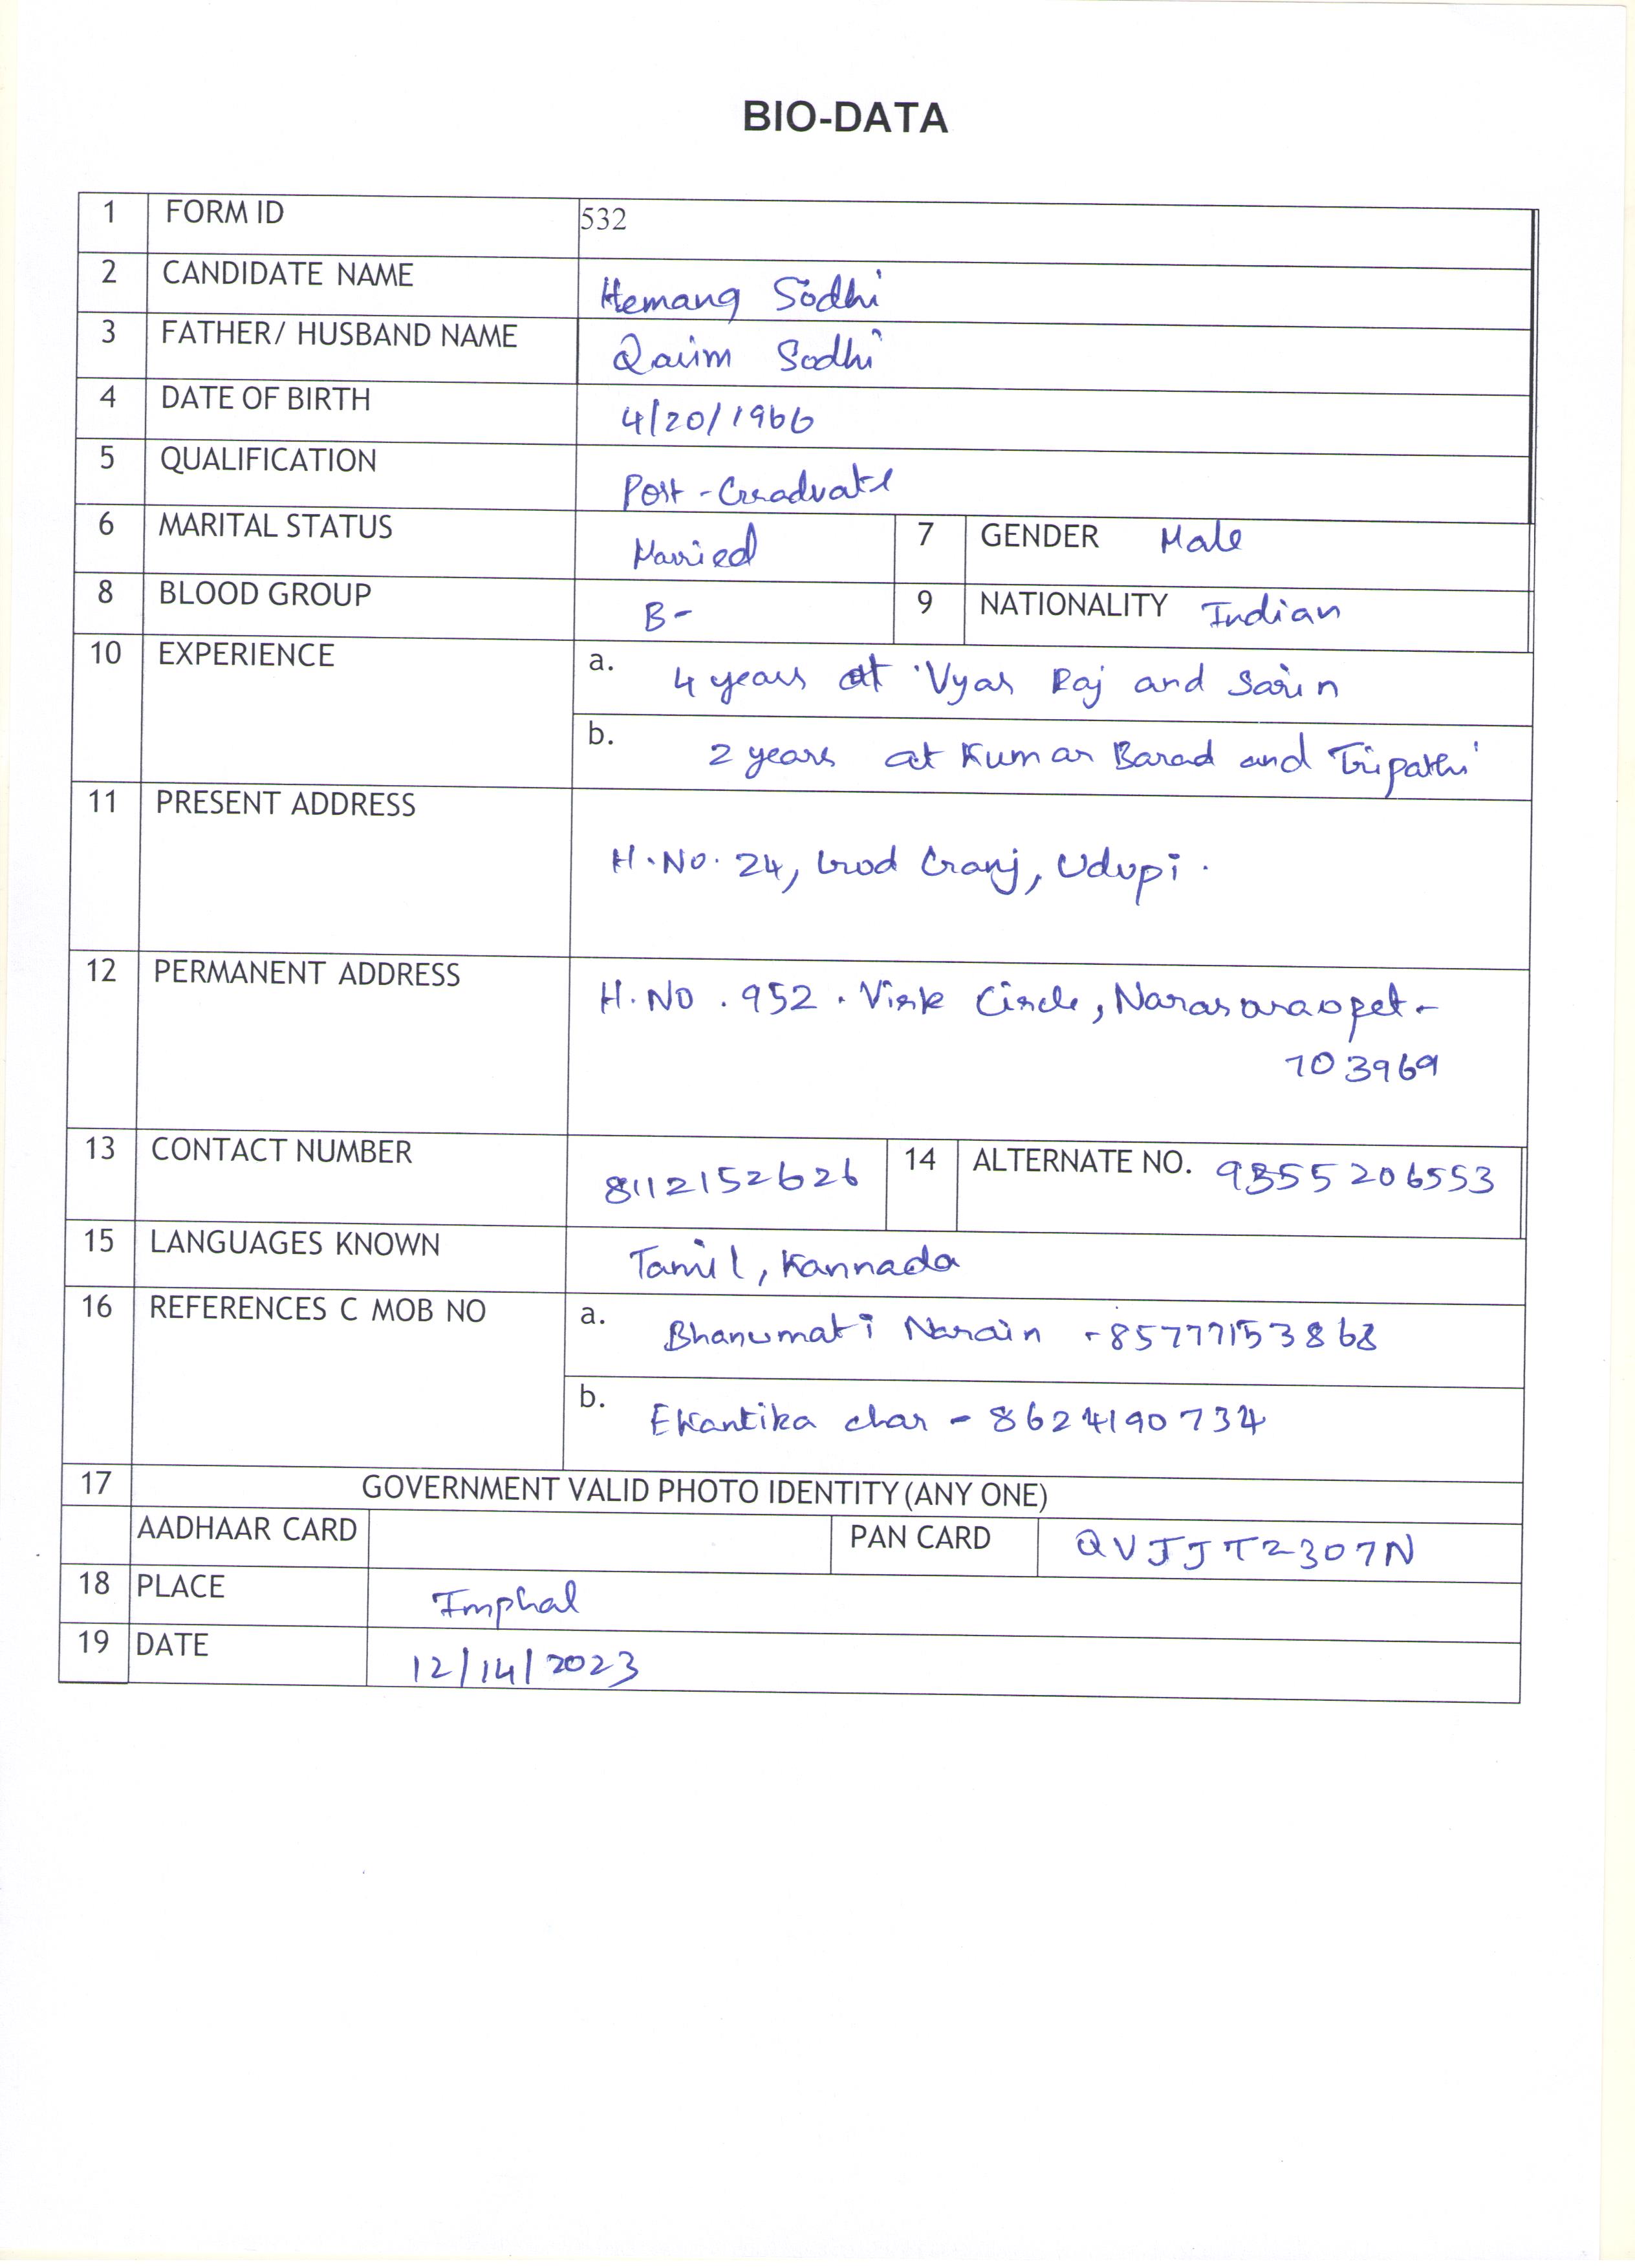 BIO-DATA
1 FORM ID 532
2 CANDIDATE NAME Hemang Sodhi
3 FATHER/ HUSBAND NAME Qarim Sodhi
4 DATE OF BIRTH 4/20/1966
5 QUALIFICATION Post-Graduate
6 MARITAL STATUS Married 7 GENDER Male
8 BLOOD GROUP B- 9 NATIONALITY Indian
10 EXPERIENCE a. 4 years at Vyas Raj and Sarin
b. 2 years at Kumar Barad and Tripathi
11 PRESENT ADDRESS
H.No. 24, Ganj, Udupi.
12 PERMANENT ADDRESS H.No. 952. Circle, Narasaraopet-
703969
13 CONTACT NUMBER 8112152626 14 ALTERNATE NO. 9355206553
15 LANGUAGES KNOWN Tamil, Kannada
16 REFERENCES C MOB NO a. Bhanumati Narain -
b. Ekantika char - 8624190734
17 GOVERNMENT VALID PHOTO IDENTITY (ANY ONE)
AADHAAR CARD PAN CARD QVJJT2307N
18 PLACE Imphal
19 DATE 12/14/2023